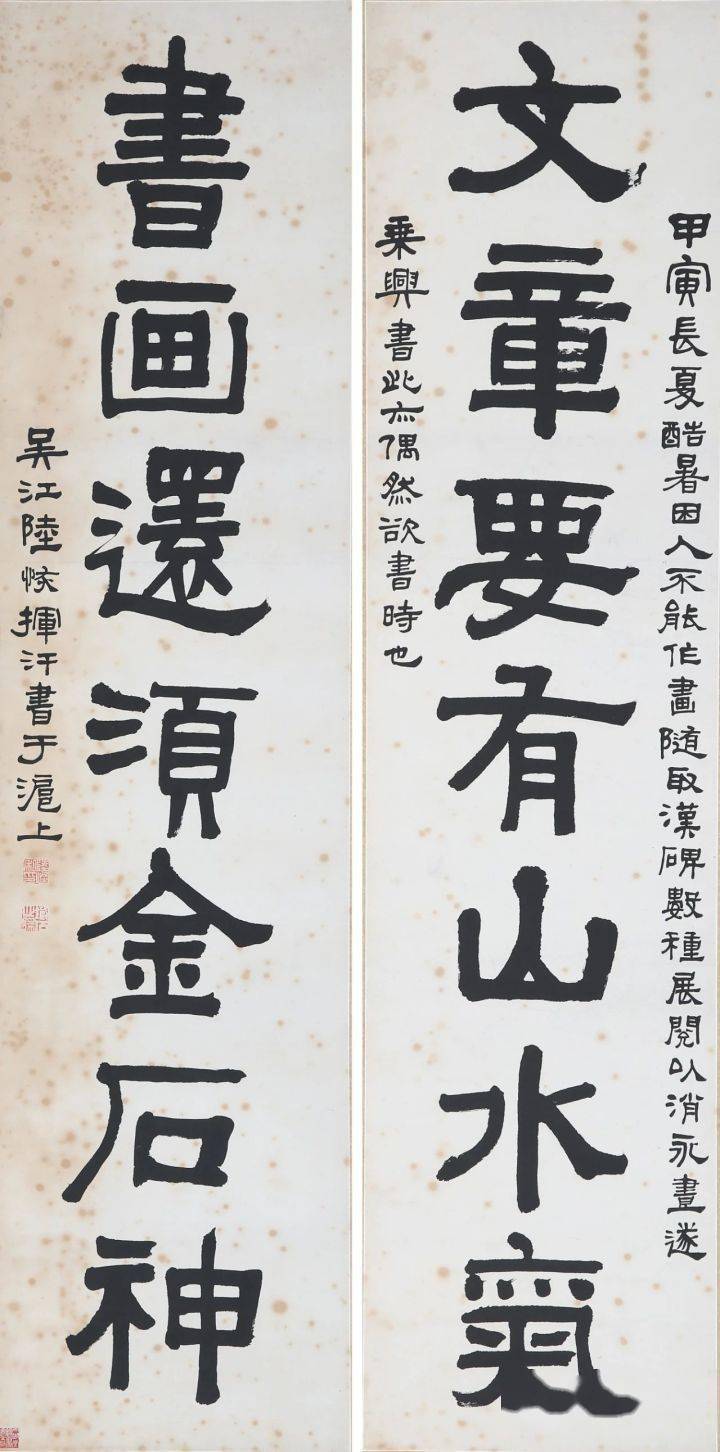 甲寅長夏酷暑困人不能作畫隨取漢碑數種展閱以消永晝遂
文章要有山水氣
乘興書此亦偶然欲書時也
書画還須金石神
吳江陸恢揮汗書于滬上